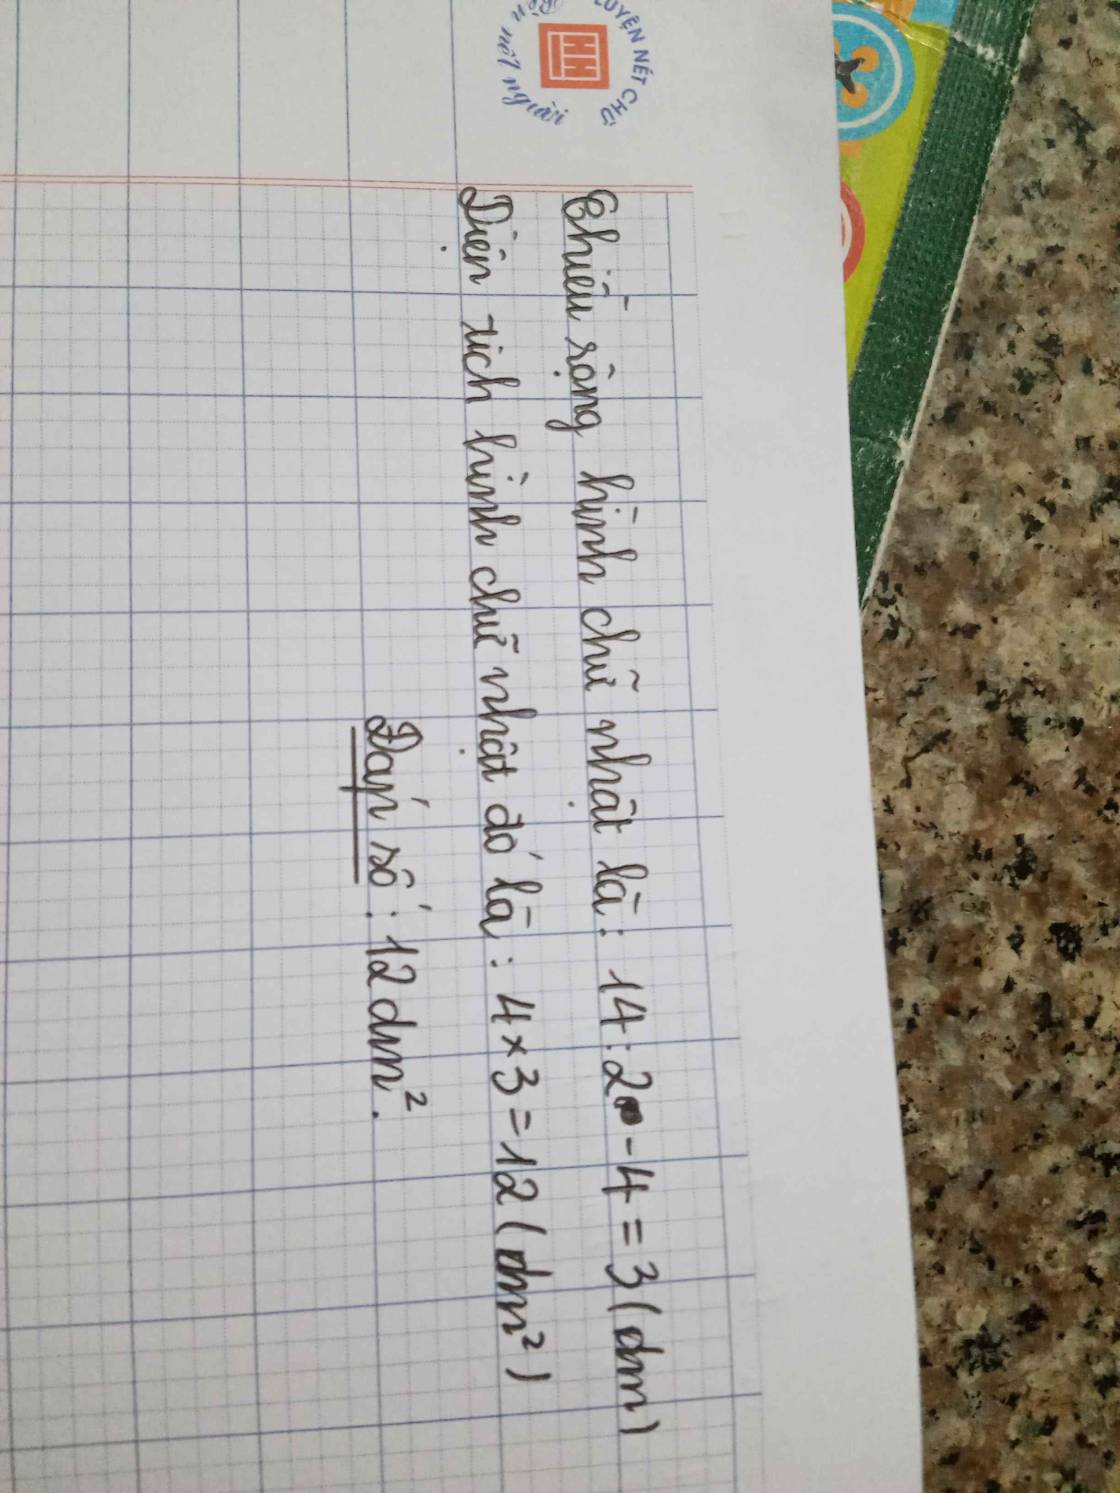 LUYỆN NÉT CHỮ
nết người
Chiều rộng hình chữ nhật là: 14:2 - 4 = 3 (dm)
Diện tích hình chữ nhật đó là: 4 x 3 = 12 (dm²)
Đáp số: 12 dm².